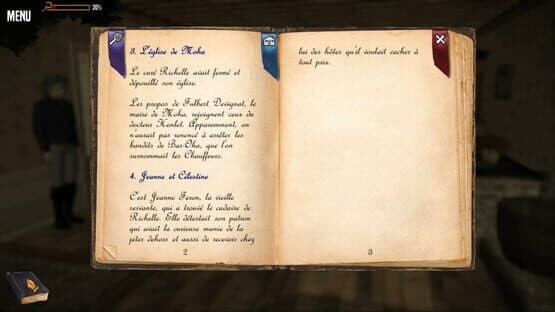 MENU
30%
3. L'église de Moha
Le curé Richelle avait fermé et
dépouillé son église.
Les propos de Fulbert Devignat, le
maire de Moha, rejoignent ceux du
docteur Hontet. Apparemment, on
n'aurait pas renoncé à arrêter les
bandits de Bas-Oha, que l'on
surnommait les Chauffeurs.
4. Jeanne et Célestine
C'est Jeanne Feron, la vieille
servante, qui a trouvé le cadavre de
Richelle. Elle détestait son patron
qui avait la curieuse manie de la
jeter dehors et aussi de recevoir chez
2
lui des hôtes qu'il voulait cacher à
tout prix.
3